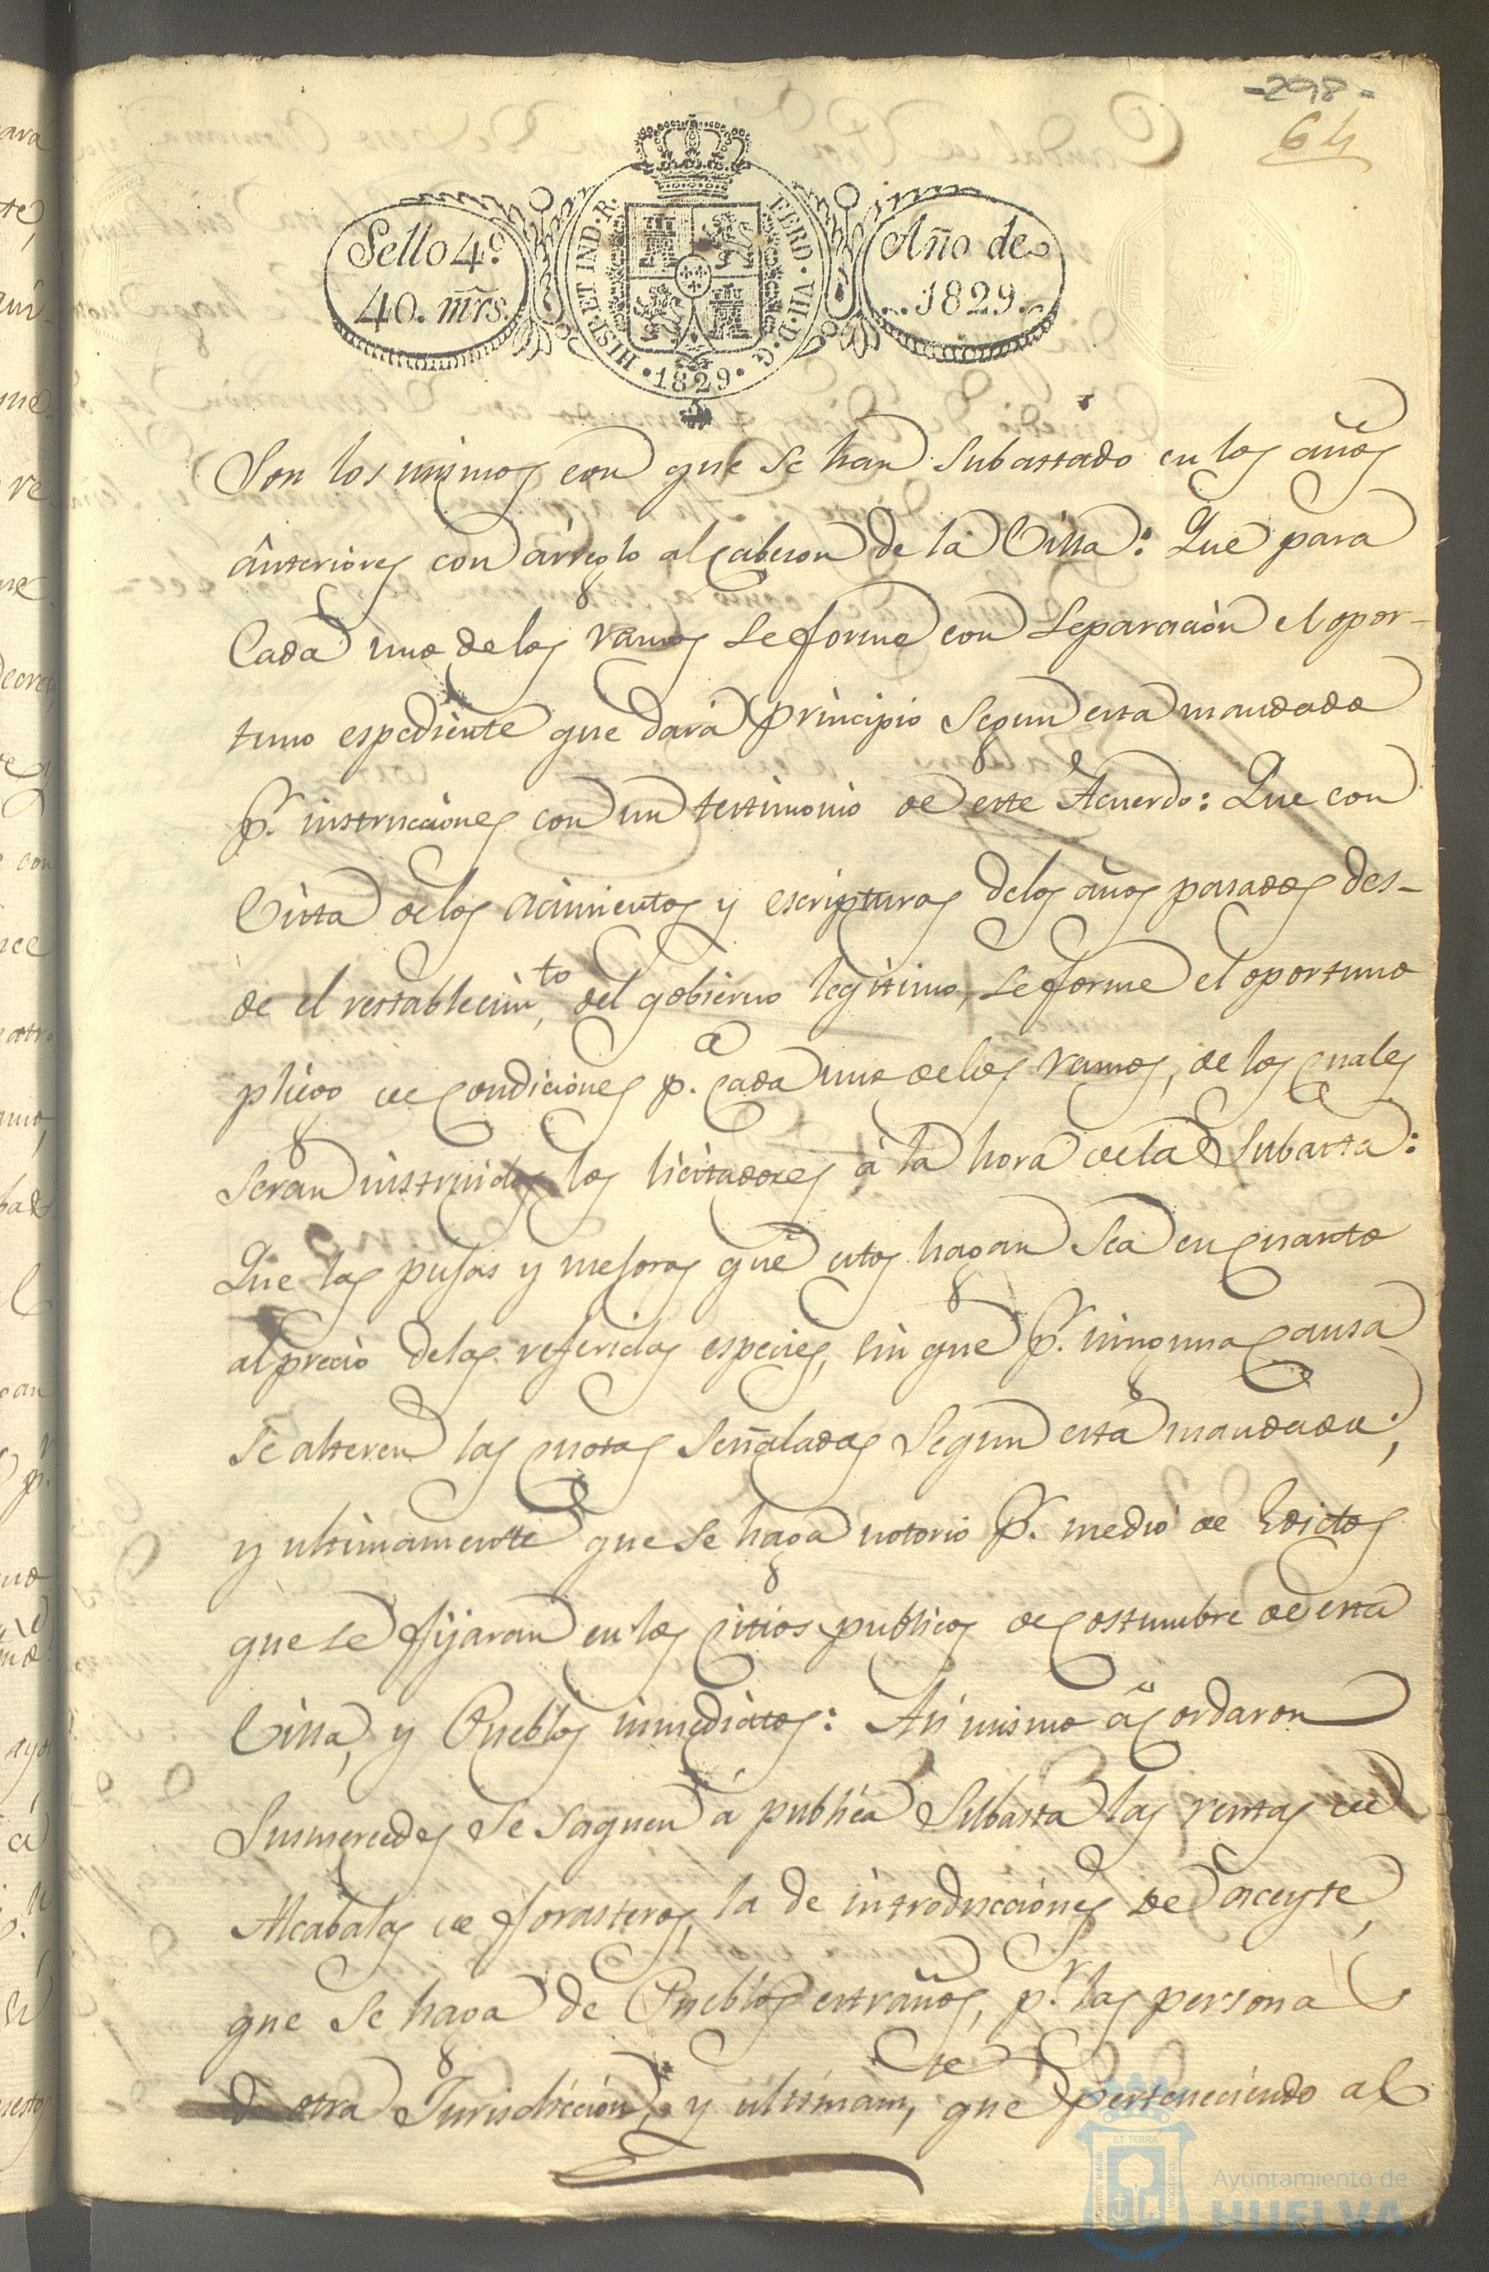 -298-
64
Sello 4.º
40. mrs.
HISP. ET IND. R. FERD. VII. D. G.
·1829·
Año de
1829.
Son los mismos con que se han subastado en los años
anteriores con arreglo al cabeson de la Villa: Que para
Cada uno de los ramos se forme con separación el opor-
tuno espediente que dará principio segun esta mandado
pr. instrucciones con un testimonio de este Acuerdo: Que con
Vista de los acimientos y escripturas delos años pasados des-
de el restablecimto, del gobierno legitimo, se forme el oportuno
pliego de condiciones pa. cada uno delos ramos, de los cuales
seran instruidos los licitadores á la hora dela Subasta:
Que las pujas y mejoras que estos hagan sea en cuanto
al precio delas referidas especies, sin que pr. ninguna causa
se alteren las cuotas señaladas segun está mandado;
y ultimamente que se haga notorio pr. medio de Edictos
que se fijaran en los sitios publicos de costumbre de esta
Villa, y Pueblos inmediatos: Asi mismo acordaron
Susmercedes se saquen á publica Subasta las rentas de
Alcabalas de forasteros, la de introducciones de aceyte,
que se haga de Pueblos estraños, pr. las personas
de otra Jurisdiccion, y ultimamte, que perteneciendo al
ET TERRA
Ayuntamiento de
HUELVA